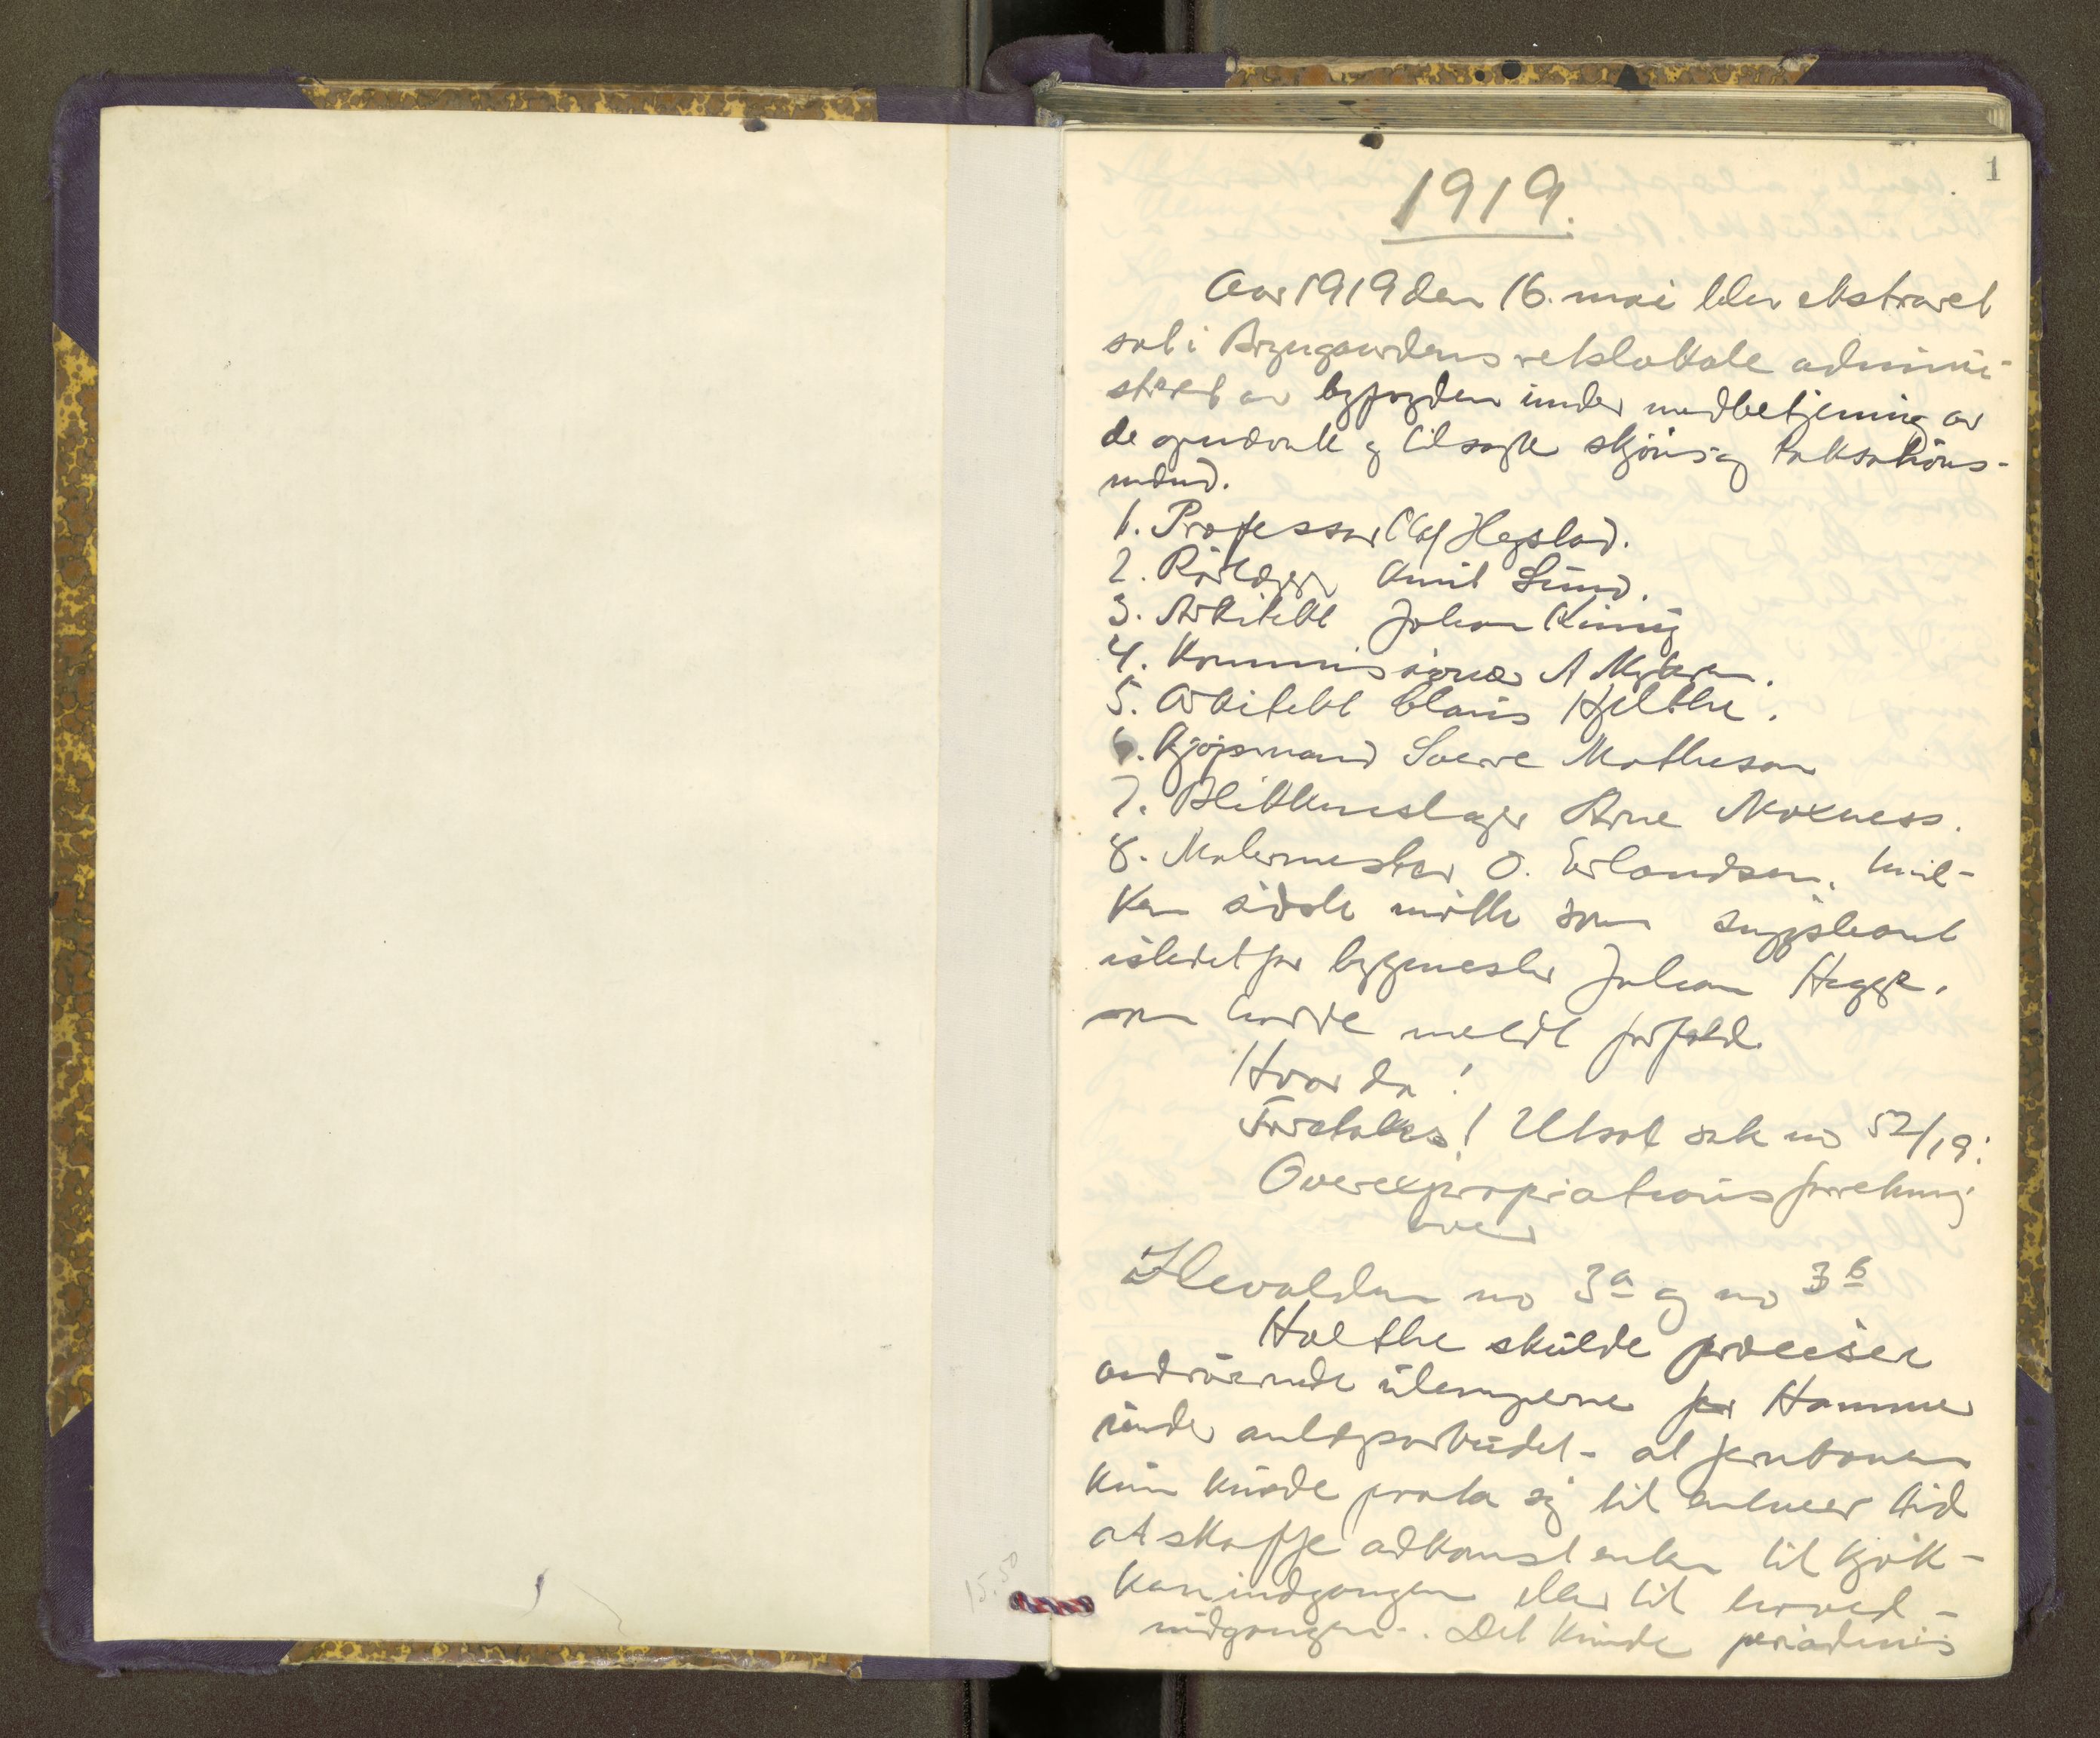 1
1919.
Aar 1919 den 16. mai blev ekstraret
sat i Byengaardens retslokale admini-
streret av byfogden under medbetjening av
de opnævnte og tilsagte skjøns og taksations-
mænd.
1. Professor Olaf Hegstad.
2. Rørlægger Emil Lund.
3. Arkitekt Johan Kunig
4. Kommissionær A Myhren.
5. Arkitekt Claus Hjelthe.
6. Kjøpmand Sverre Matheson
7. Blikkenslager Arne Moxness.
8. Malermester O. Erlandsen, hvil-
ken sidste møtte som suppleant
istedetfor bygmester Johan Hegge,
som hadde meldt forfald.
Hvorda!
Foretokes! Utsat sak no 52/19:
Overexpropriationsforretning
over
Ilevolden no 3a og no 3b
Holthe skulde præcisere
andrørende ulemperne for Hammer
under anlægsarbeidet - at jernbanen
kun kunde prata sig til enhver tid
at skaffe adkomst enten til kjøk-
kenindgangen eller til hoved-
indgangen. Det kunde periodevis
15.50